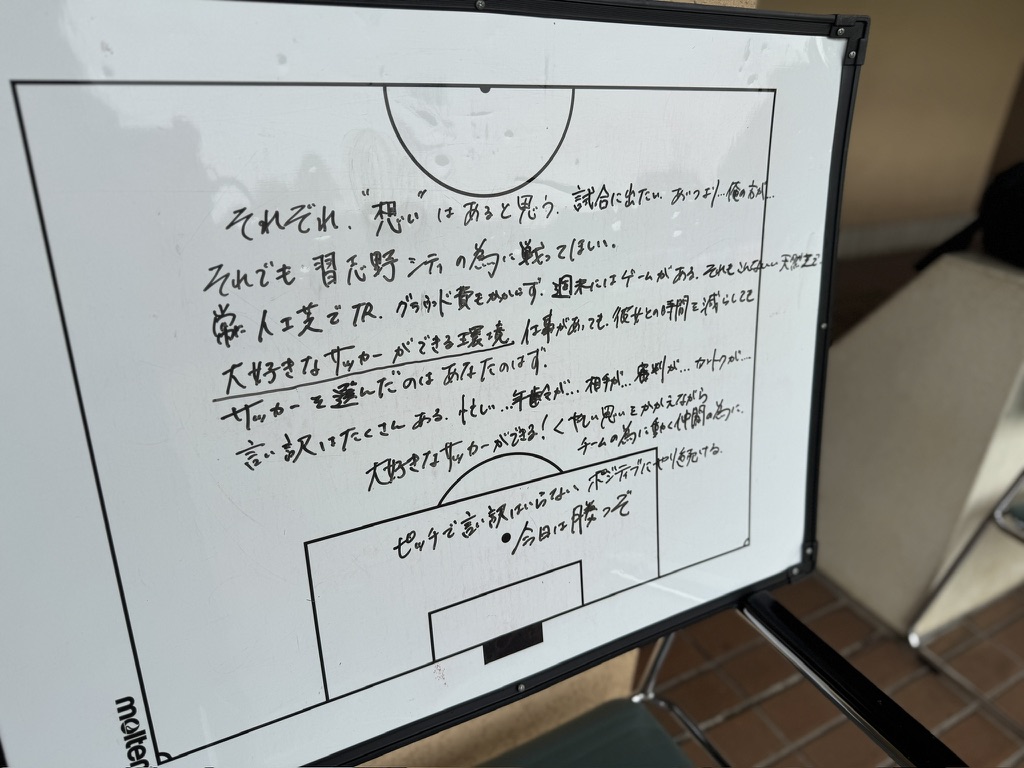 それぞれ、"想い"はあると思う、試合に出たい、あいつより…俺の方が…
それでも習志野シティの為に戦ってほしい。
常に人工芝でTR、グラウンド費もかからず、週末にはゲームがある。それもこんないい天然芝で
大好きなサッカーができる環境、仕事があっても、彼女との時間を減らしても
サッカーを選んだのはあなたのはず。
言い訳はたくさんある、忙しい…年齢が…相手が…審判が…カントクが…
大好きなサッカーができる!くやしい思いをかかえながら
チームの為に動く仲間の為に、
ピッチで言い訳はいらない、ポジティブにやり続ける。
今日は勝つぞ
molten